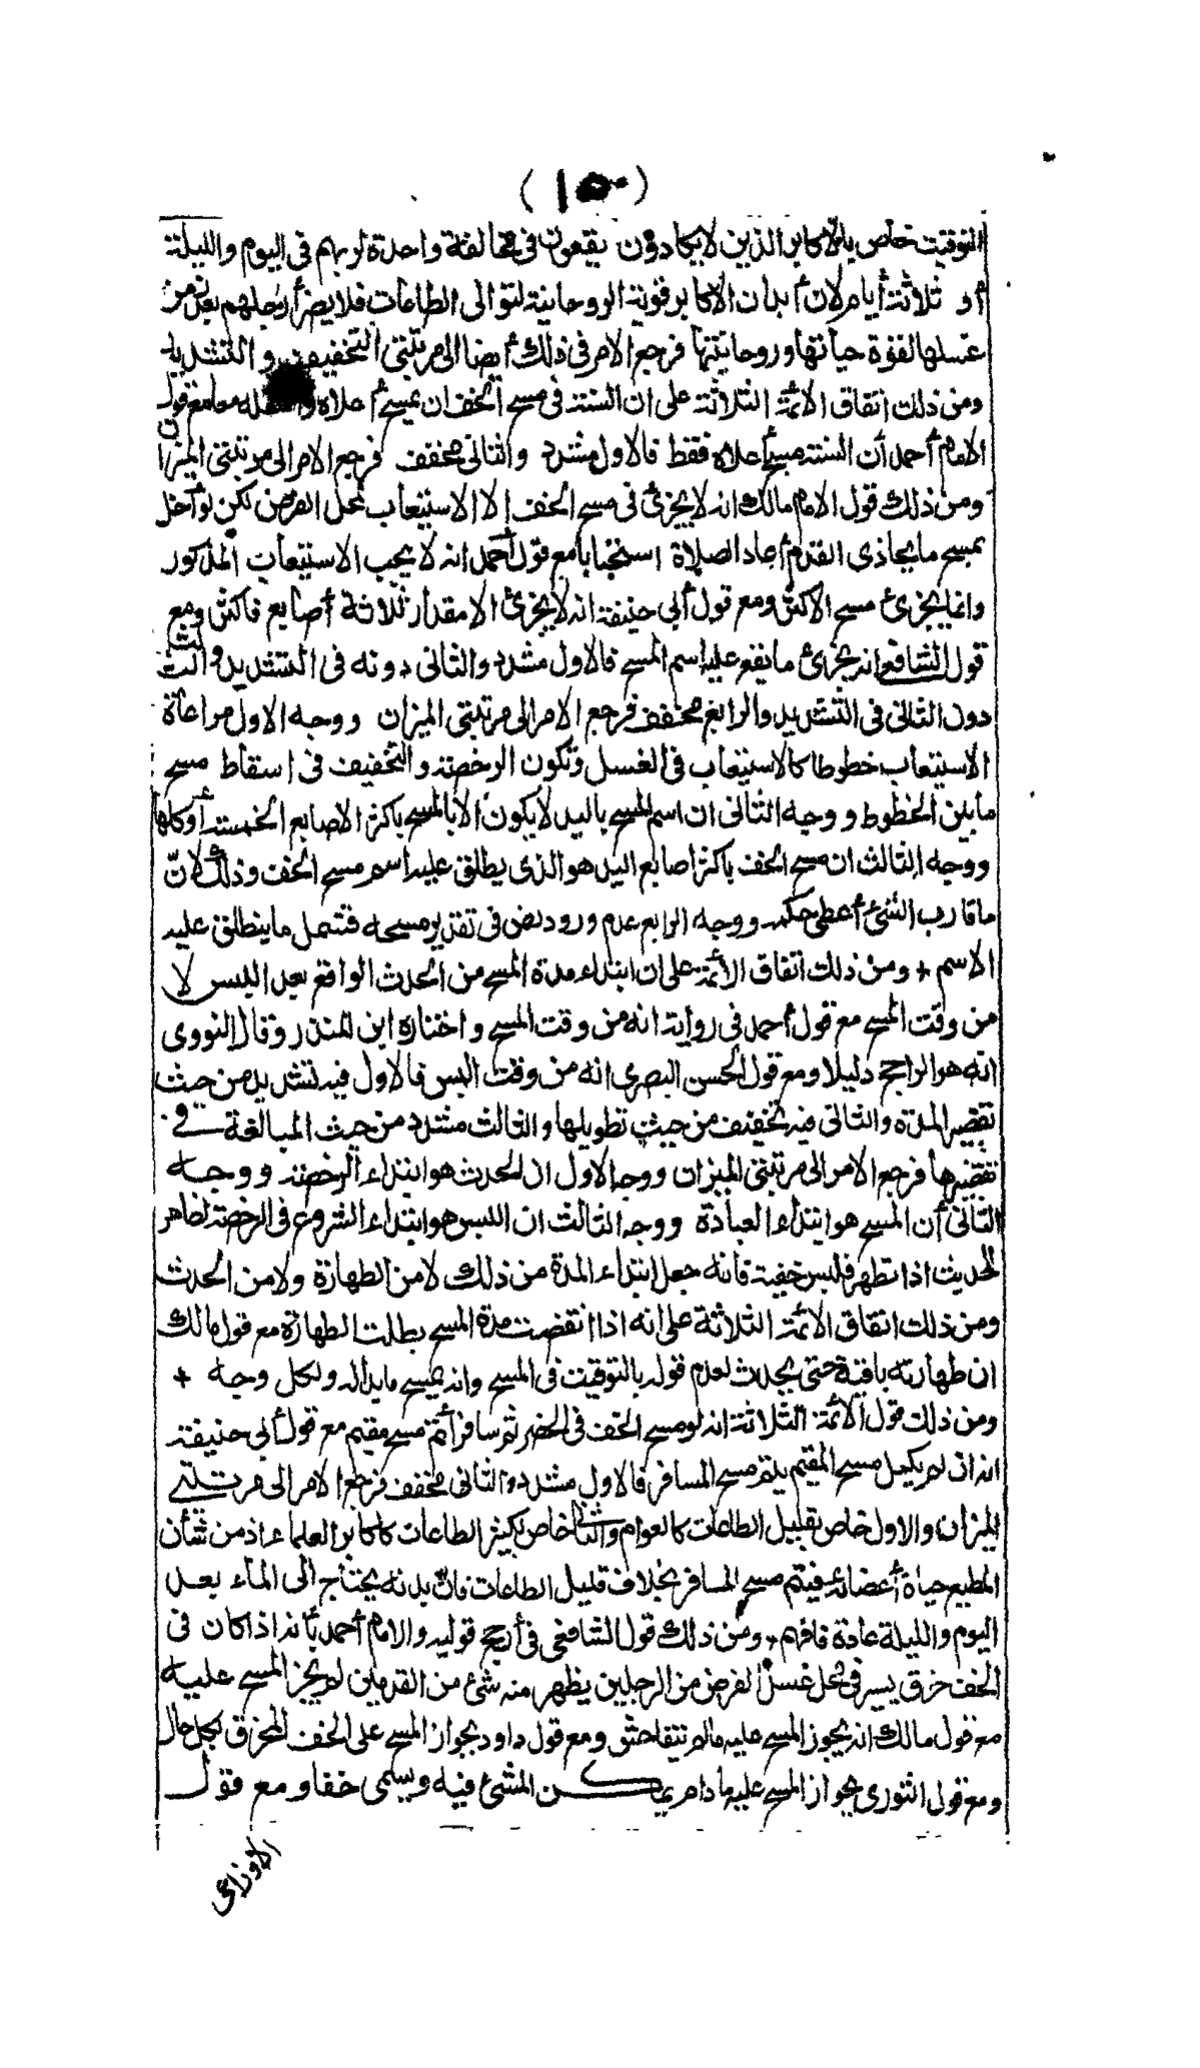 (١٥٠)
التوقيت خاص بالأكابر الذين لا يكادون يقعون فى مخالفة واحدة لربهم فى اليوم والليلة
أو ثلاثة أيام لان أبدان الاكابر قوية الروحانية لتوالى الطاعات فلا يضر أرجلهم بعدهن من
غسلها لقوة حياتها وروحانيتها فرجع الامر فى ذلك أيضا الى مرتبتى التخفيف والتشديد
ومن ذلك اتفاق الائمة الثلاثة على ان السنة فى مسح الخف ان يمسح أعلاه وأسفله معا مع قول
الامام أحمد أن السنة مسح أعلاه فقط فالاول مشدد والثانى مخفف فرجع الامر الى مرتبتى الميزان
ومن ذلك قول الامام مالك انه لا يجزئ فى مسح الخف إلا الاستيعاب لمحل الفرض لكن لو أخل
بمسح ما يحاذى القدم أعاد الصلاة استحبابا مع قول أحمد انه لا يجب الاستيعاب المذكور
وانما يجزئ مسح الاكثر ومع قول أبى حنيفة انه لا يجزئ الا مقدار ثلاثة أصابع فاكثر ومع
قول الشافعى انه يجزئ ما يقع عليه اسم المسح فالاول مشدد والثانى دونه فى التشديد والثالث
دون الثانى فى التشديد والرابع مخفف فرجع الامر الى مرتبتى الميزان ووجه الاول مراعاة
الاستيعاب خطوطا كالاستيعاب فى الغسل وتكون الرخصة والتخفيف فى اسقاط مسح
ما بين الخطوط ووجه الثانى ان اسم المسح باليد لا يكون الا بالمسح باكثر الاصابع الخمسة أو كلها
ووجه الثالث ان مسح الخف باكثر اصابع اليد هو الذى يطلق عليه اسم مسح الخف وذلك لانّ
ما قارب الشئ أعطى حكمه ووجه الرابع عدم ورود نص فى تقدير مسحه فتحمل ما ينطلق عليه
الاسم + ومن ذلك اتفاق الأئمة على ان ابتداء مدة المسح من الحدث الواقع بعد اللبس لا
من وقت المسح مع قول أحمد فى رواية انه من وقت المسح واختاره ابن المنذر وقال النووى
انه هو الراجح دليلا ومع قول الحسن البصرى انه من وقت اللبس فالاول فيه تشديد من حيث
تقصير المدة والثانى فيه تخفيف من حيث تطويلها والثالث مشدد من حيث المبالغة فى
تقصيرها فرجع الامر الى مرتبتى الميزان ووجه الاول ان الحدث هو ابتداء الرخصة ووجه
الثانى أن المسح هو ابتداء العبادة ووجه الثالث ان اللبس هو ابتداء الشروع فى الرخصة لظاهر
الحديث اذا تطهر فلبس خفيه فانه جعل ابتداء المدة من ذلك لا من الطهارة ولا من الحدث
ومن ذلك اتفاق الائمة الثلاثة على انه اذا انقضت مدة المسح بطلت الطهارة مع قول مالك
ان طهارته باقية حتى يحدث لعدم قوله بالتوقيت فى المسح وانه يمسح ما بدا له ولكل وجه +
ومن ذلك قول الأئمة الثلاثة انه لو مسح الخف فى الحضر ثم سافر أتم مسح مقيم مع قول أبى حنيفة
انه ان لم يكمل مسح المقيم يتم مسح المسافر فالاول مشدد والثانى مخفف فرجع الامر الى مرتبتى
الميزان والاول خاص بقليل الطاعات كالعوام والثانى خاص بكثير الطاعات كاكابر العلماء اذ من شأن
المطيع حياة أعضائه فيتم مسح المسافر بخلاف قليل الطاعات فان بدنه يحتاج الى الماء بعد
اليوم والليلة عادة فافهم + ومن ذلك قول الشافعى فى أرجح قوليه والامام أحمد بأنه اذا كان فى
الخف خرق يسير فى محل غسل الفرض من الرجلين يظهر منه شئ من القدمين لم يجز المسح عليه
مع قول مالك انه يجوز المسح عليه ما لم يتفاحش ومع قول داود بجواز المسح على الخف المخرق بكل حال
ومع قول الثورى بجواز المسح عليه ما دام يمكن المشئ فيه ويسمى خفا ومع قول
الاوزاعى